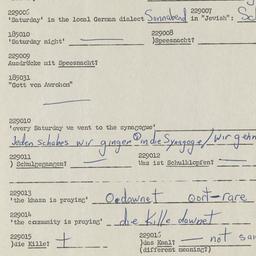 229006 229007
'Saturday' in the local German dialect Sonnabend in "Jewish":
185010 229008
'Saturday night' )Speesnacht?
229009
Ausdrücke mit Speesnacht?
185031
"Gott von Awrohom"
229010
'every Saturday we went to the synagogue'
Jeden schabes wir gingen in die Synagoge / Wir gehn
229011 229012
) Schulgegangen? Was ist Schulklopfen?
229013
'the khazn is praying' O. dawnet oort - rare
229014
'the community is praying' die kille dawnet
229015 229016
)die Kille? + )das Kaal? — not
(different meaning?)